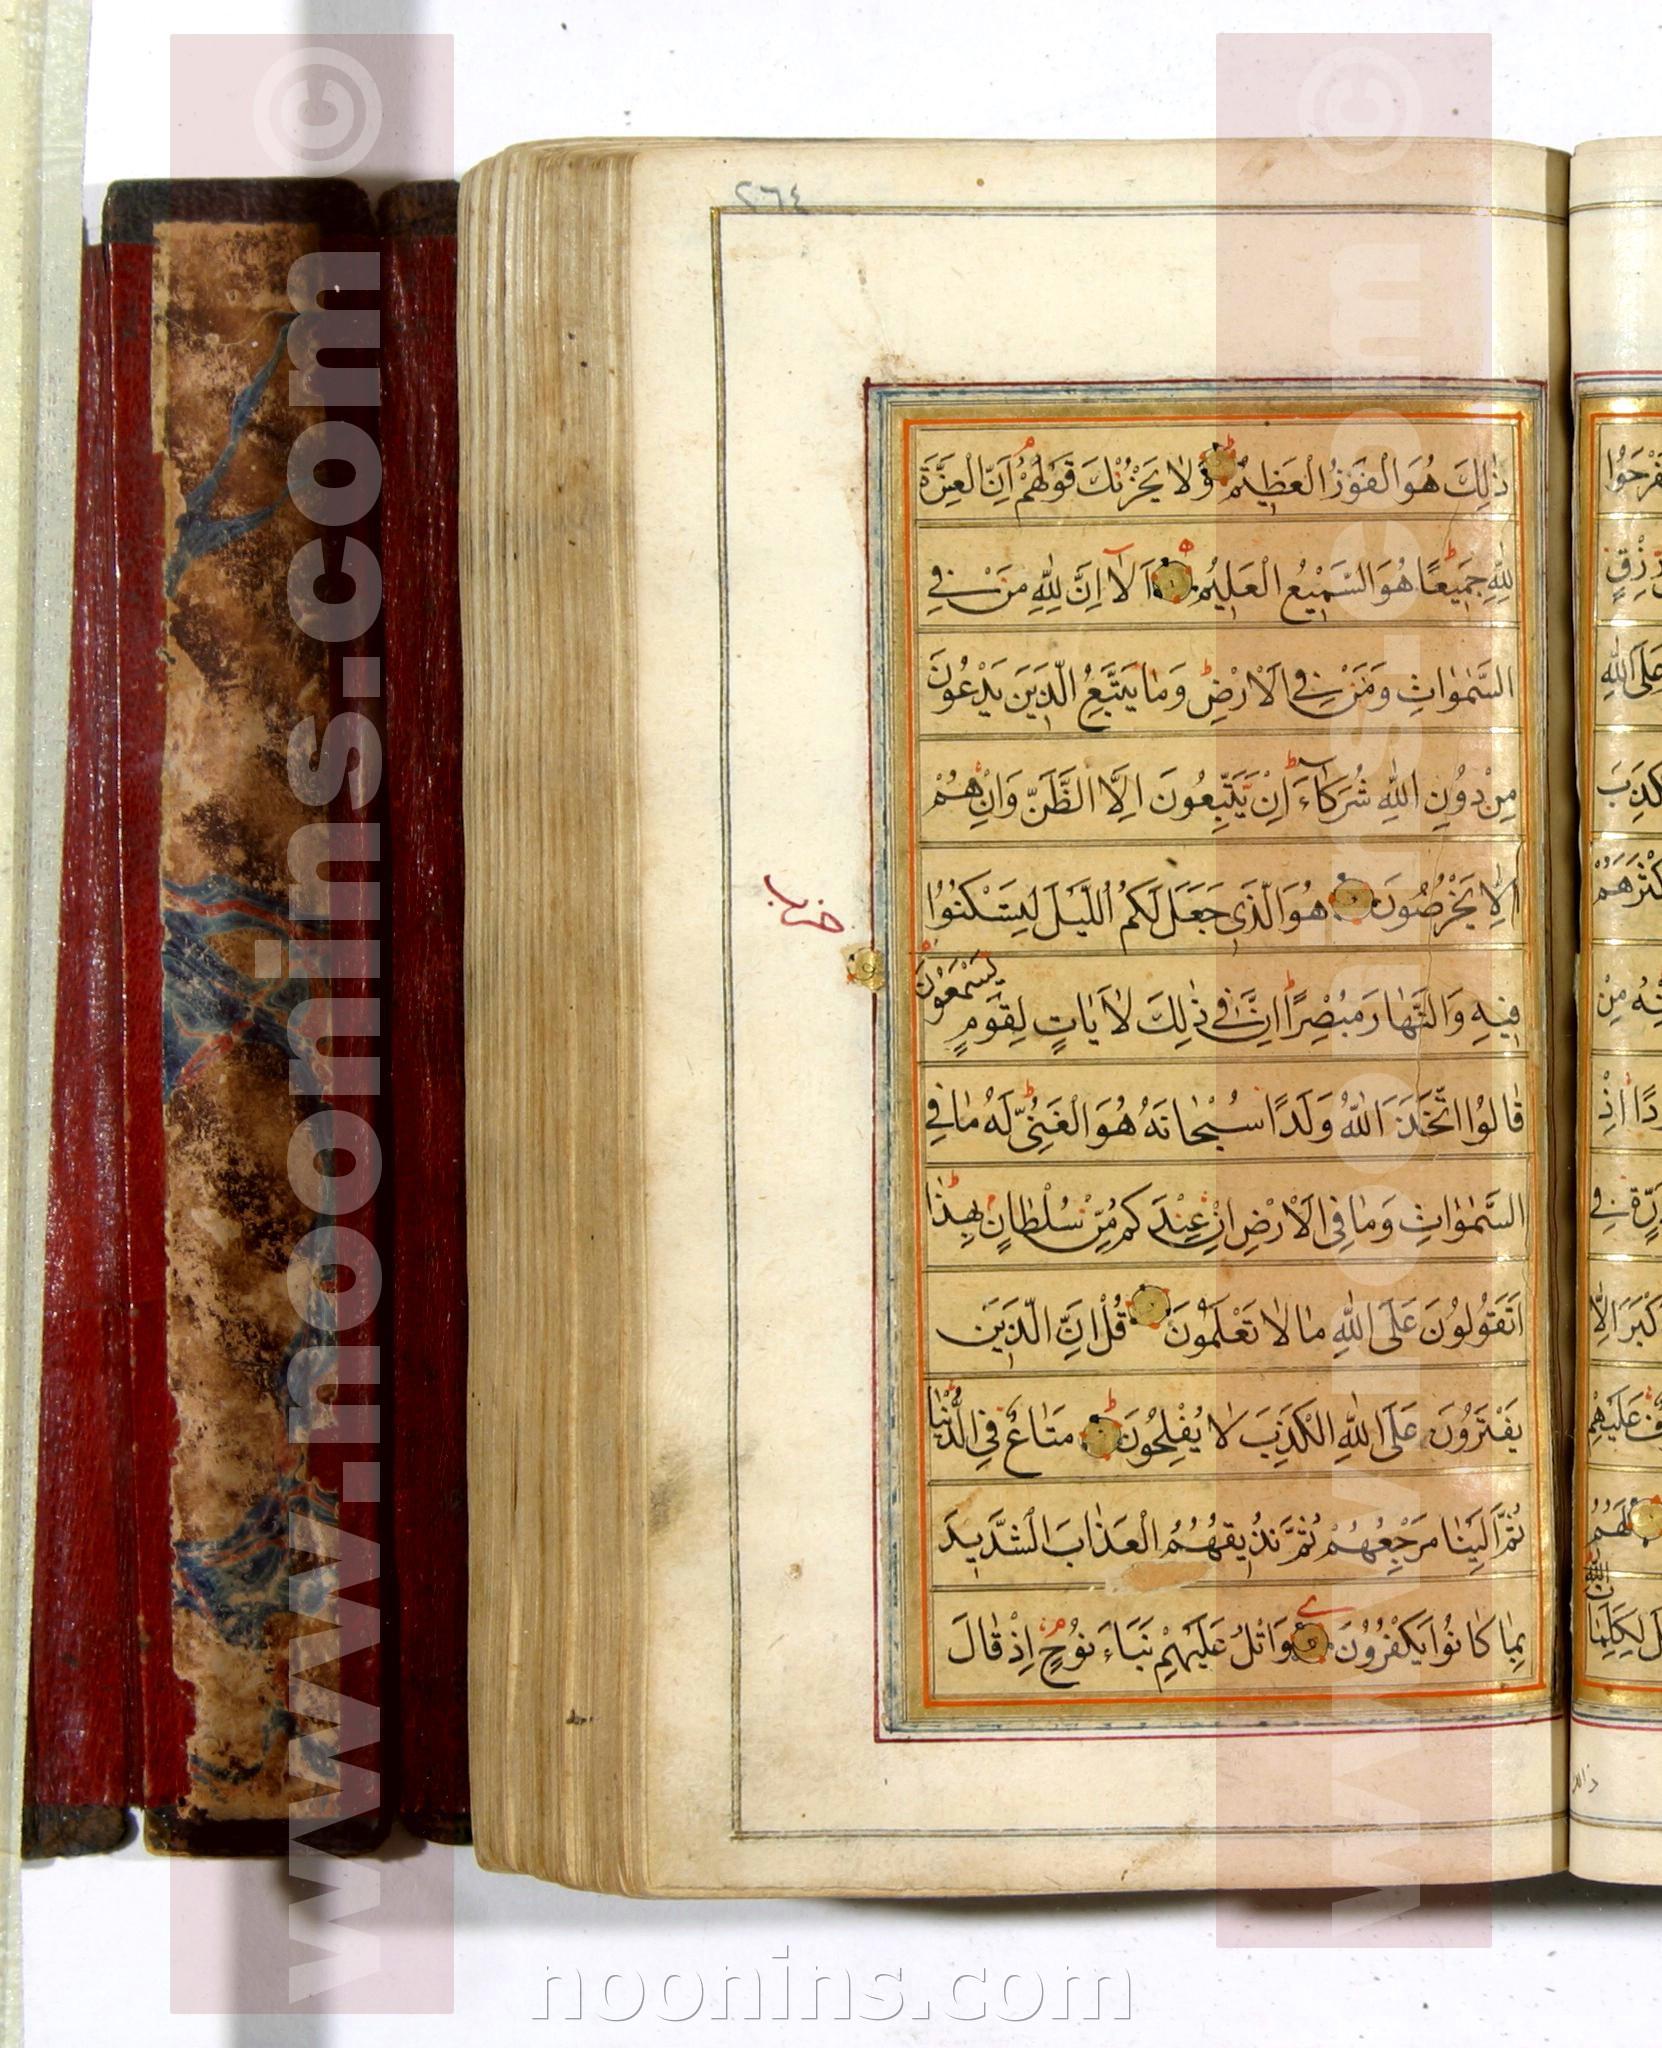 ٢٦٤
ذٰلِكَ هُوَ الْفَوْزُ الْعَظِيْمُ وَلَا يَحْزُنْكَ قَوْلُهُمْ اِنَّ الْعِزَّةَ
لِلّٰهِ جَمِيْعًا هُوَ السَّمِيْعُ الْعَلِيْمُ اَلَا اِنَّ لِلّٰهِ مَنْ فِي
السَّمٰوَاتِ وَمَنْ فِي الْاَرْضِ وَمَا يَتَّبِعُ الَّذِيْنَ يَدْعُوْنَ
مِنْ دُوْنِ اللّٰهِ شُرَكَآءَ اِنْ يَتَّبِعُوْنَ اِلَّا الظَّنَّ وَاِنْ هُمْ
اِلَّا يَخْرُصُوْنَ هُوَ الَّذِي جَعَلَ لَكُمُ اللَّيْلَ لِتَسْكُنُوْا
فِيْهِ وَالنَّهَارَ مُبْصِرًا اِنَّ فِي ذٰلِكَ لَاٰيَاتٍ لِقَوْمٍ يَسْمَعُوْنَ
قَالُوا اتَّخَذَ اللّٰهُ وَلَدًا سُبْحَانَهُ هُوَ الْغَنِيُّ لَهُ مَا فِي
السَّمٰوَاتِ وَمَا فِي الْاَرْضِ اِنْ عِنْدَكُمْ مِنْ سُلْطَانٍ بِهٰذَا
اَتَقُوْلُوْنَ عَلَى اللّٰهِ مَا لَا تَعْلَمُوْنَ قُلْ اِنَّ الَّذِيْنَ
يَفْتَرُوْنَ عَلَى اللّٰهِ الْكَذِبَ لَا يُفْلِحُوْنَ مَتَاعٌ فِي الدُّنْيَا
ثُمَّ اِلَيْنَا مَرْجِعُهُمْ ثُمَّ نُذِيْقُهُمُ الْعَذَابَ الشَّدِيْدَ
بِمَا كَانُوا يَكْفُرُوْنَ وَاتْلُ عَلَيْهِمْ نَبَاَ نُوْحٍ اِذْ قَالَ
حزب
www.noonins.com ©
www.noonins.com ©
noonins.com